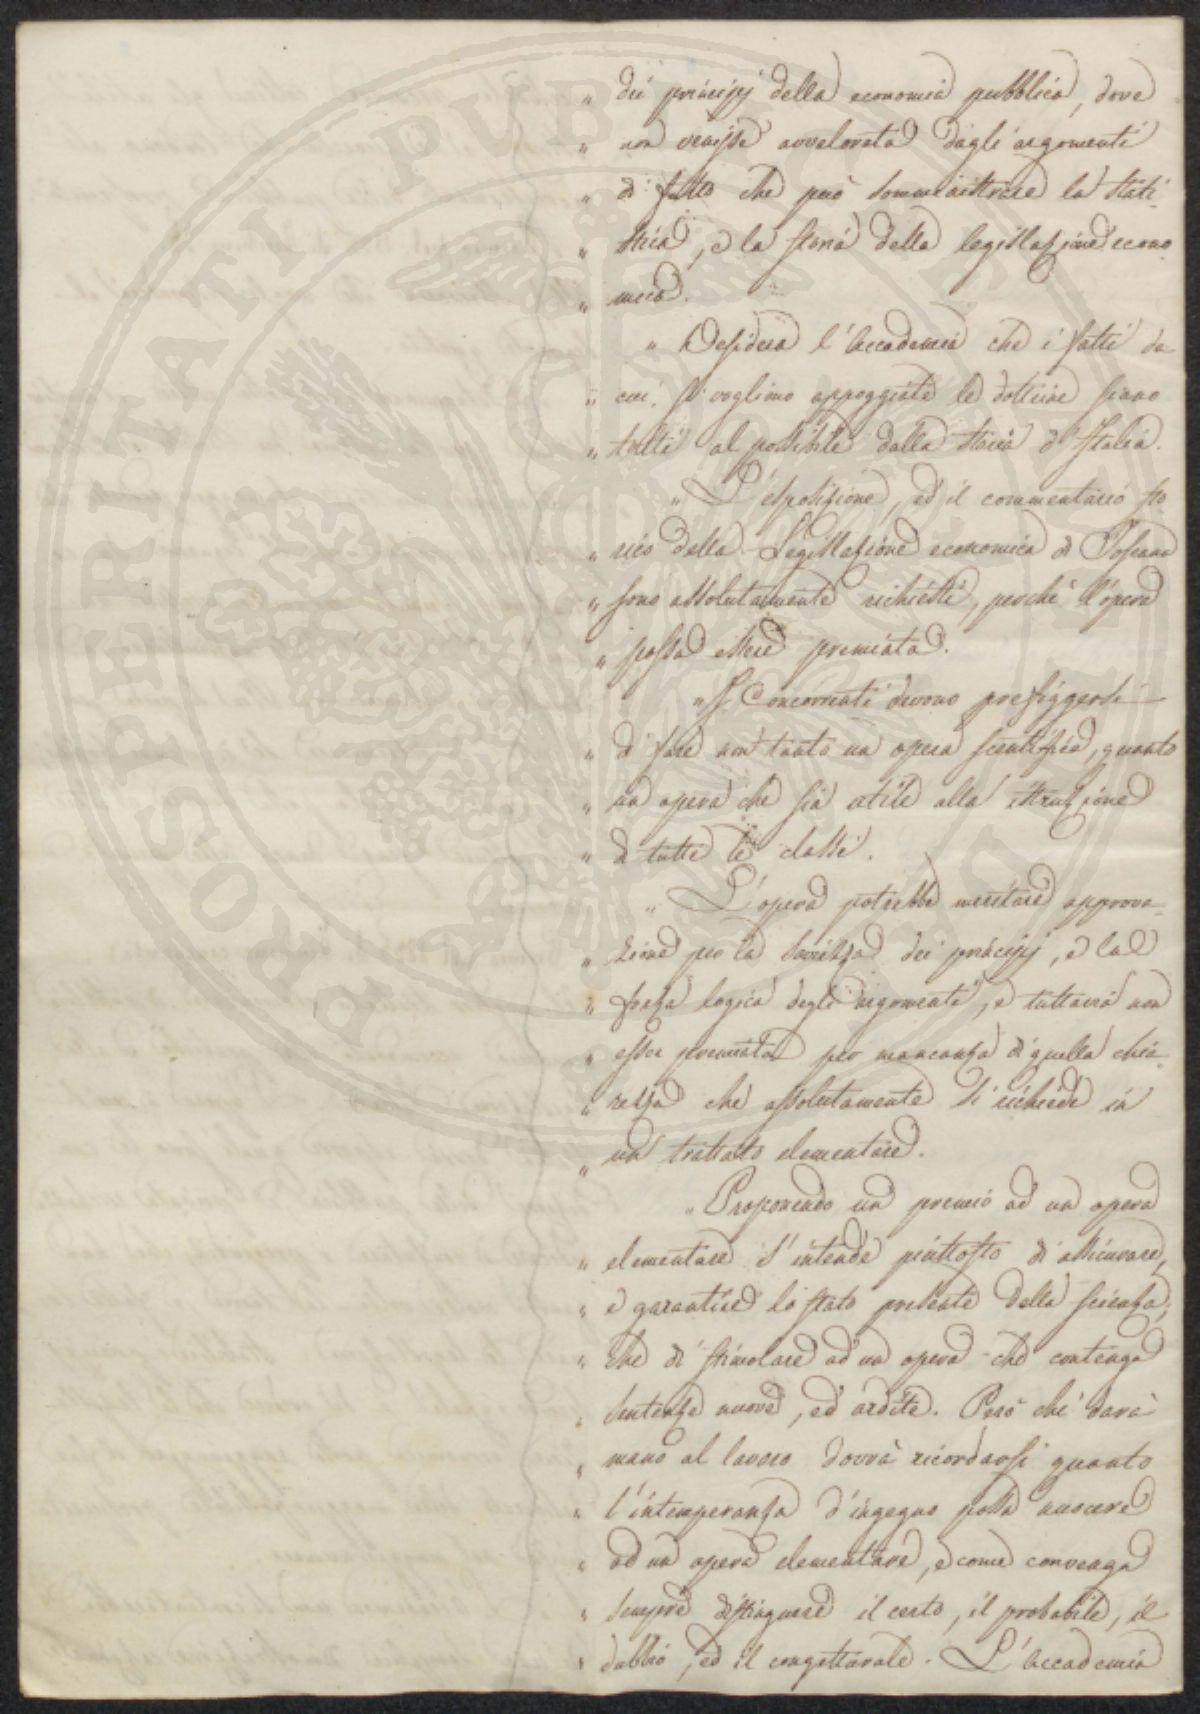 " dei principj della economia pubblica, dove
" non venisse avvalorata dagli argomenti
" di fatto che può somministrare la stati-
" stica, e la storia della legislazione econo-
" mica.
" Desidera l'Accademia che i fatti da
" cui si vogliono appoggiate le dottrine siano
" tolti al possibile dalla storia d'Italia.
" L'esposizione, ed il commentario sto
" rico della Legislazione economica di Toscana
" sono assolutamente richiesti, perchè l'opera
" possa essere premiata.
" I Concorrenti devono prefiggersi
" di fare non tanto un opera scientifica, quanto
" un opera che sia utile alla istruzione
" di tutte le classi.
" L'opera potrebbe meritare approva-
" zione per la sodezza dei principj, e la
" forza logica degli argomenti, e tuttavia non
" esser premiata per mancanza di quella chia-
" rezza che assolutamente si richiede in
" un trattato elementare.
" Proponendo un premio ad un opera
" elementare s'intende piuttosto di assicurare,
" e garantire lo stato presente della scienza,
" che di stimolare ad un opera che contenga
" sentenze nuove, ed ardite. Però chi darà
" mano al lavoro dovrà ricordarsi quanto
" l'intemperanza d'ingegno possa nuocere
" ad un opera elementare, e come convenga
" sempre distinguere il certo, il probabile, il
" dubbio, ed il congetturale. L'Accademia
PROSPERITATI PUBLICAE